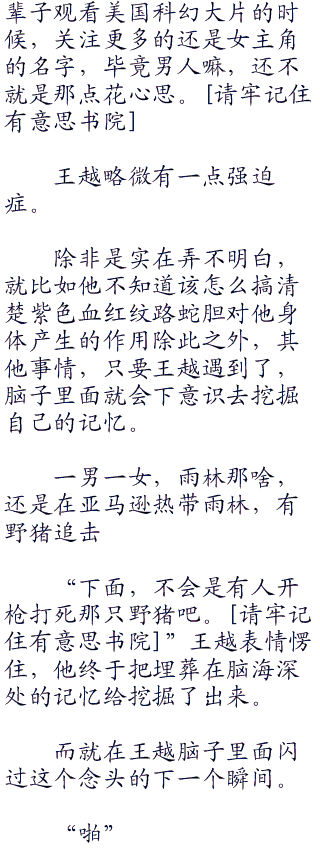 辈子观看美国科幻大片的时
候，关注更多的还是女主角
的名字，毕竟男人嘛，还不
就是那点花心思。[请牢记住
有意思书院]
王越略微有一点强迫
症。
除非是实在弄不明白，
就比如他不知道该怎么搞清
楚紫色血红纹路蛇胆对他身
体产生的作用除此之外，其
他事情，只要王越遇到了，
脑子里面就会下意识去挖掘
自己的记忆。
一男一女，雨林那啥，
还是在亚马逊热带雨林，有
野猪追击
“下面，不会是有人开
枪打死那只野猪吧。[请牢记
住有意思书院]”王越表情愣
住，他终于把埋葬在脑海深
处的记忆给挖掘了出来。
而就在王越脑子里面闪
过这个念头的下一个瞬间。
“啪”